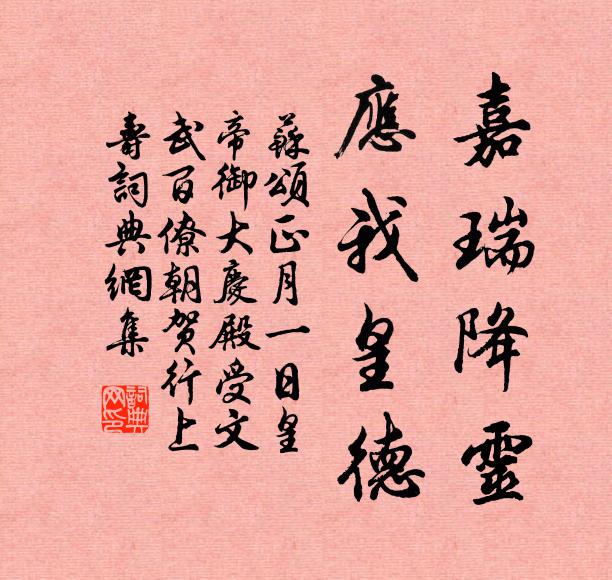 嘉瑞降靈
應我皇德
蘇頌正月一日皇
帝御大慶殿受文
武百僚朝賀行上
壽詞典網集
詞典
网印